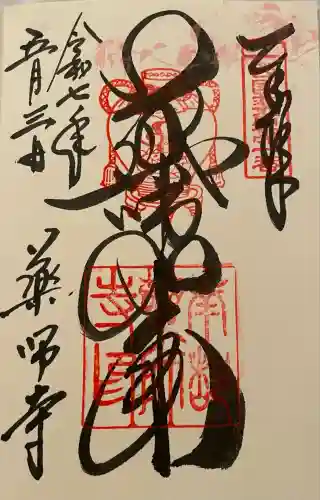 奉拝
薬師如来
令和七年
五月三日
薬師寺